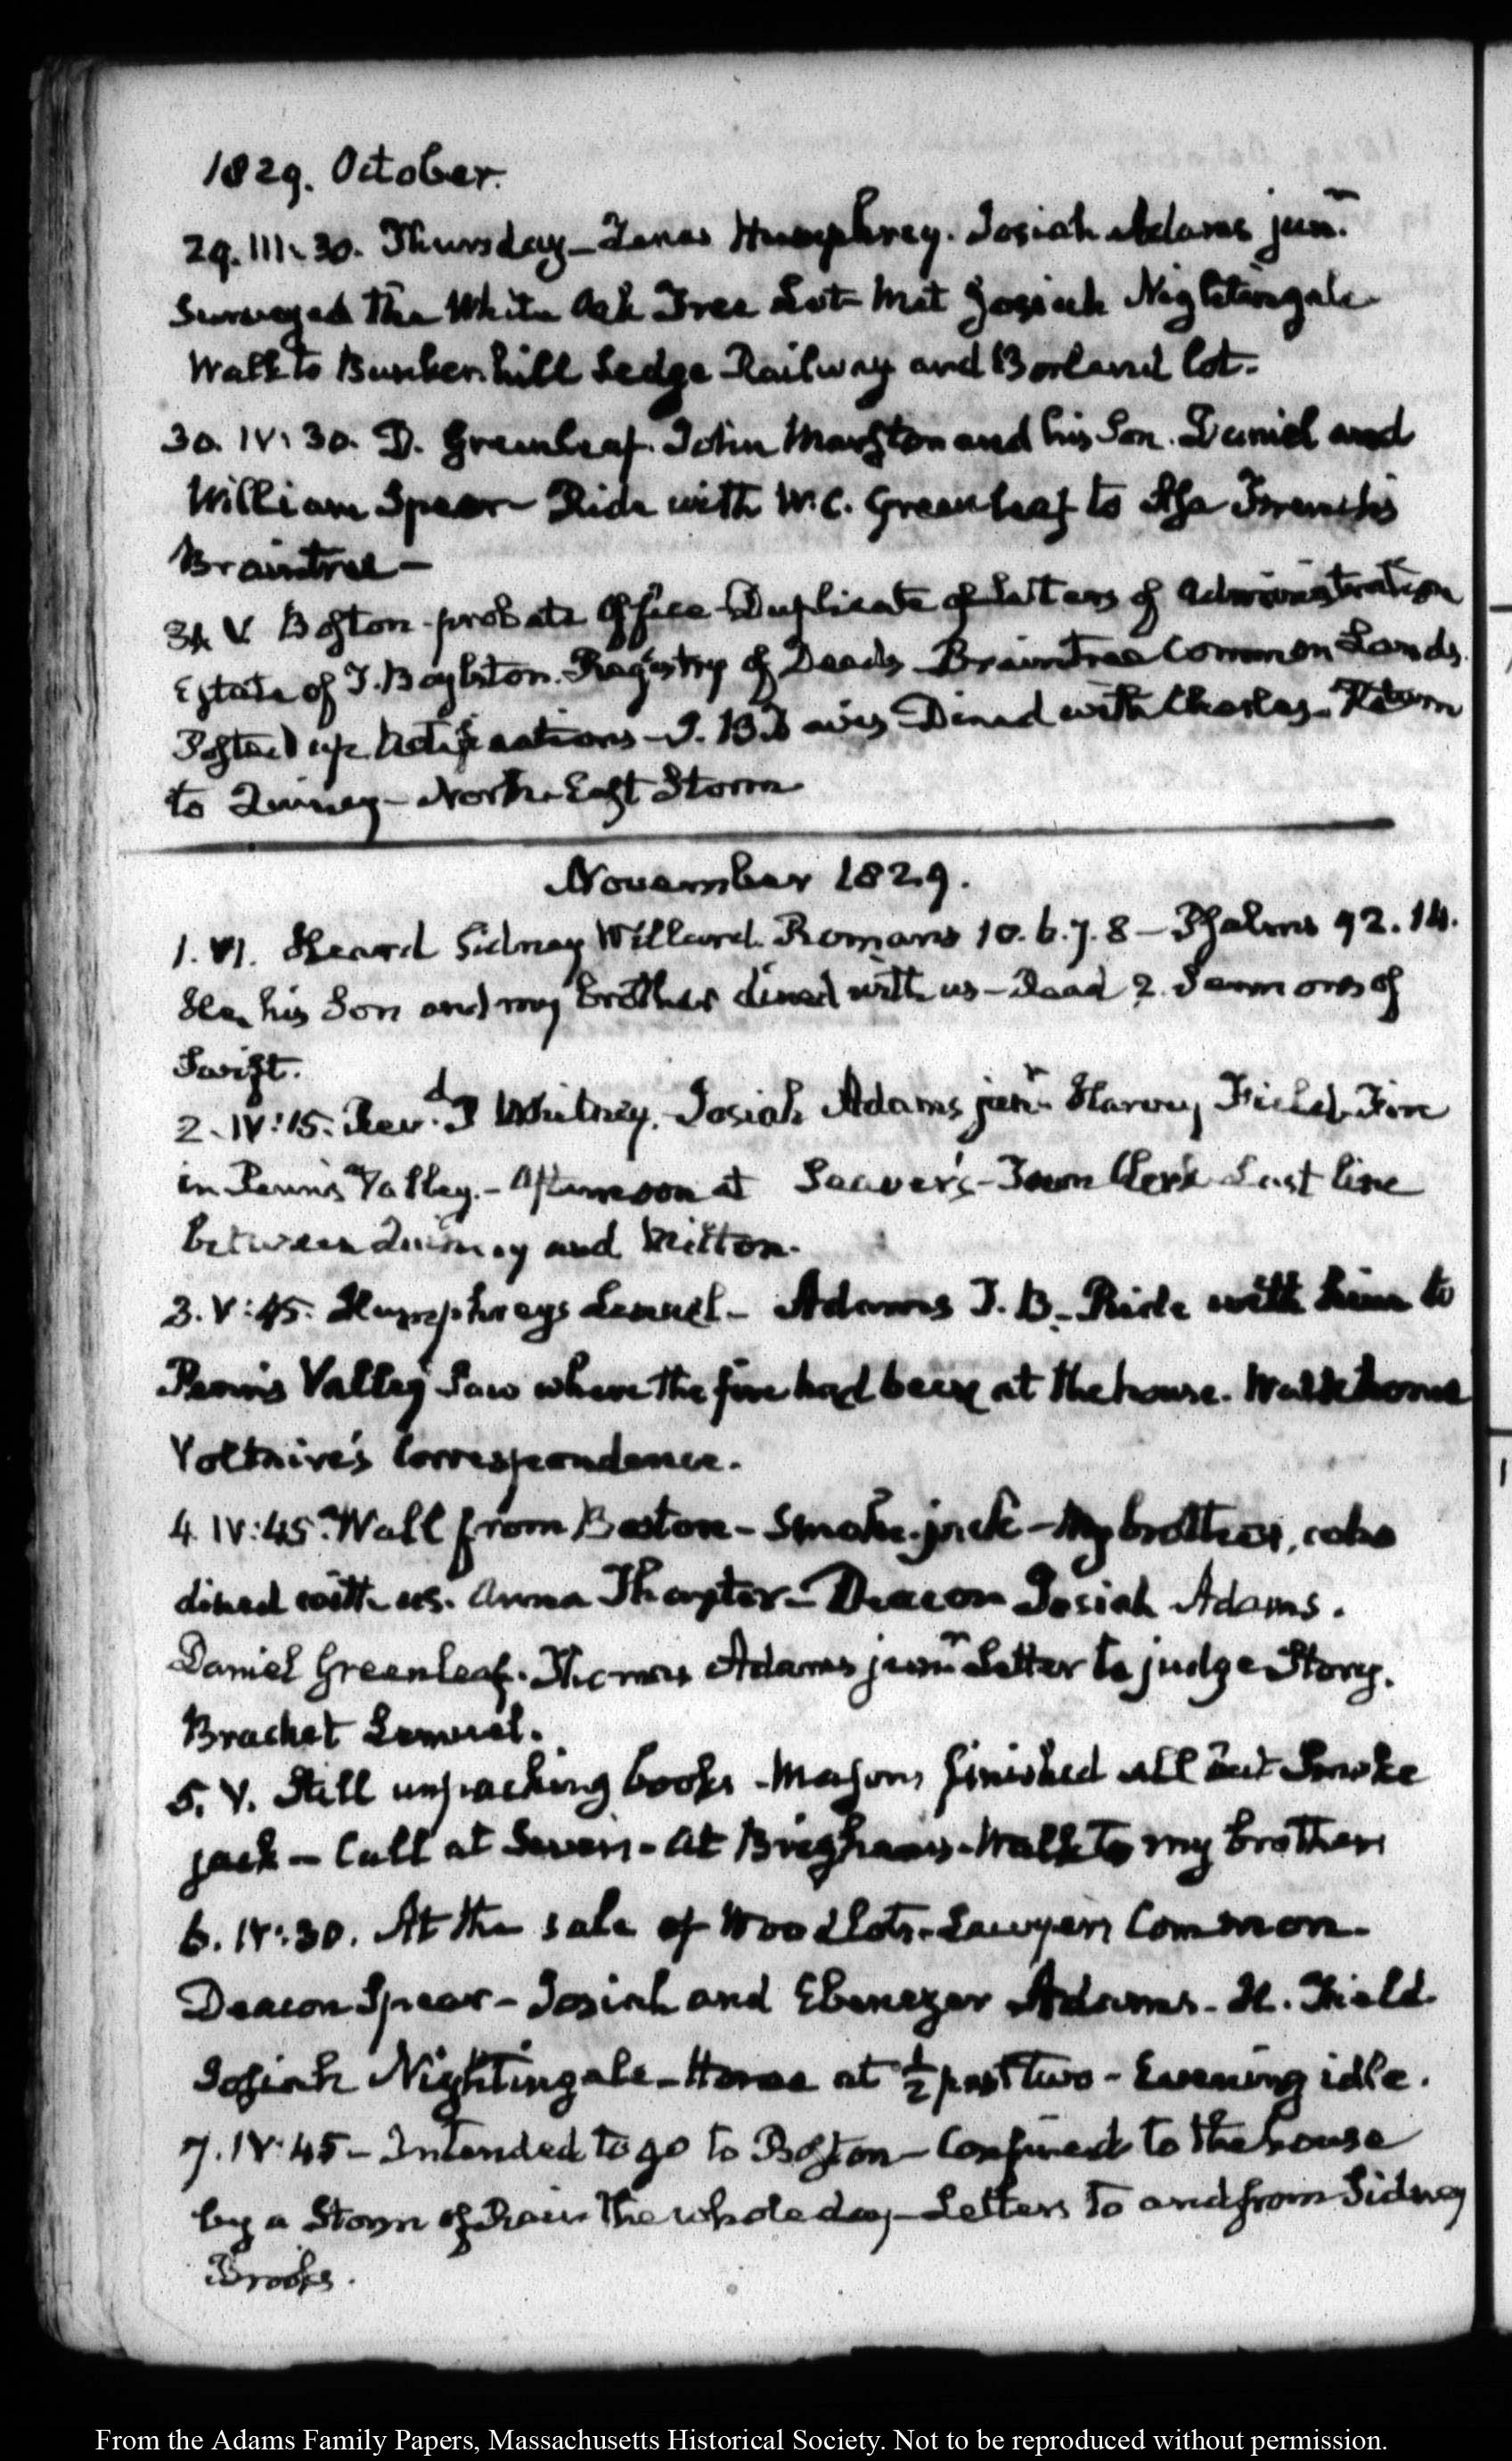 1829. October.
29. III:30. Thursday – Humphrey. Josiah Adams junr.
Surveyed the White Oak Tree Lot – Met Josiah Nightingale
Walk to Bunkerhill Ledge Railway and Borland lot.
30. IV:30. D. Greenleaf. John Marston and his Son. Daniel and
William Spear – Ride with W. C. Greenleaf to Asa French's
Braintree –
31. V. Boston – probate Office – Duplicate of Letters of administration
Estate of T. Boylston. Registry of Deeds – Braintree Common Lands.
Posted up Notifications – Dined with Charles – Return
to Quincy – North-East Storm
November 1829.
1. VI. Heard Sidney Willard. Romans 10. 6. 7. 8 – Psalms 92. 14.
He, his Son and my brother dined with us – Read 2 Sermons of
Swift.
2. IV:15. Revd. Whitney. Josiah Adams junr. Harvey Field. Fire
in Penn's Valley. – Afternoon at Seaver's – Town Clerk Lost line
between Quincy and Milton.
3. V:45. Humphreys Lemuel – Adams T. B. – Ride with him to
Penn's Valley Saw where the fire had been at the house. Walk home
Voltaire's Correspondence.
4. IV:45. Wall from Boston – Smoke-jack – My brother, who
dined with us. Anna Thaxter – Deacon Josiah Adams.
Daniel Greenleaf. Thomas Adams junr. Letter to judge Story.
Bracket Lemuel.
5. V. Still unpacking books – Masons finished all but Smoke
jack – Call at – At Brigham's – Walk to my brother's
6. IV:30. At the sale of Wood lots – Lawyer's Common.
Deacon Spear – Josiah and Ebenezer Adams – H. Field.
Josiah Nightingale – Home at ½ past two – Evening idle.
7. IV:45 – Intended to go to Boston – Confined to the house
by a Storm of Rain the whole day – Letters to and from Sidney
Brooks.
From the Adams Family Papers, Massachusetts Historical Society. Not to be reproduced without permission.